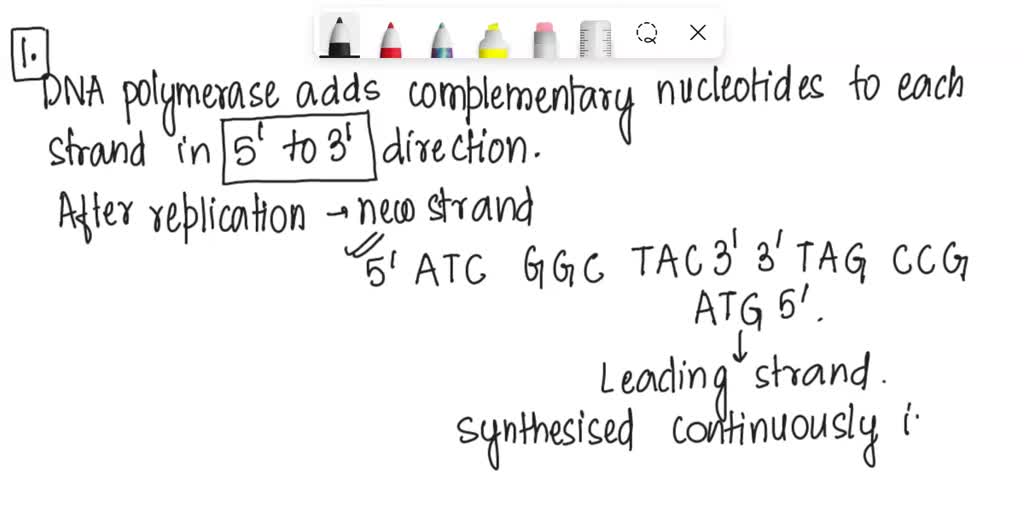 1.
DNA polymerase adds complementary nucleotides to each
strand in 5' to 3' direction.
After replication → new strand
5' ATC GGC TAC 3' 3' TAG CCG
ATG 5'.
↓
Leading strand.
synthesised continuously i